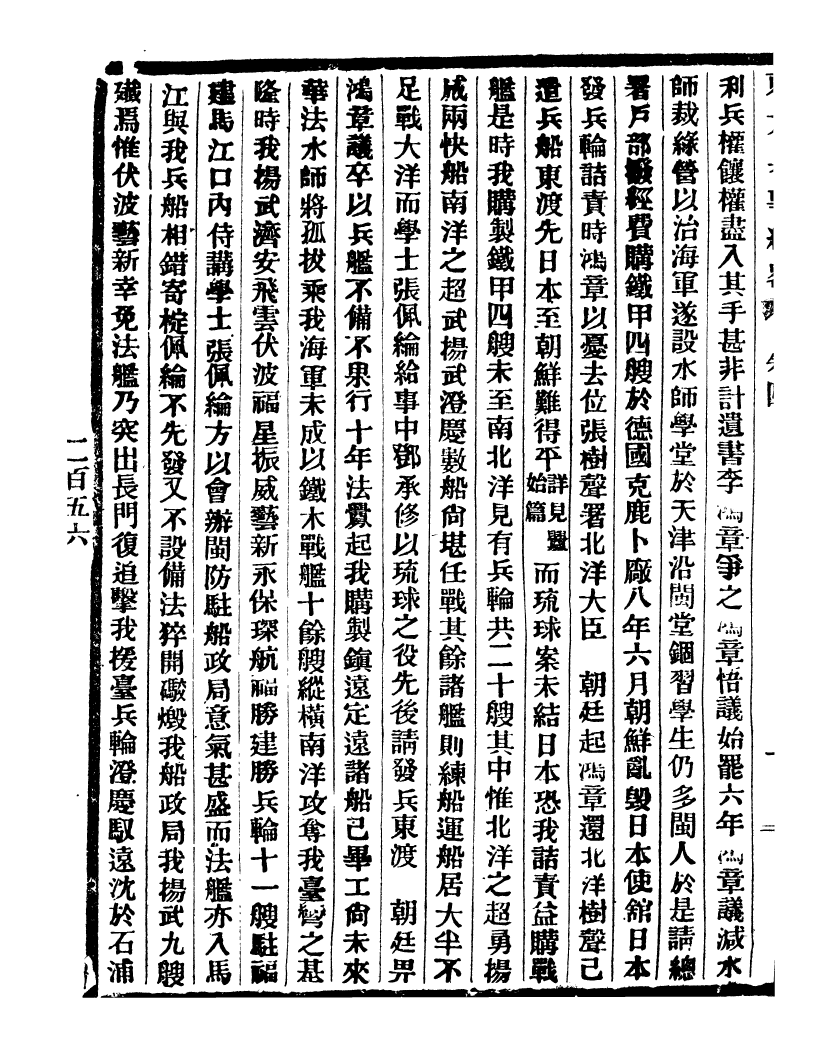 利兵權饟權盡入其手甚非計遺書李鴻章爭之鴻章悟議始罷六年鴻章議減水
師裁綠營以治海軍遂設水師學堂於天津沿閩堂錮習學生仍多閩人於是請總
署戶部撥經費購鐵甲四艘於德國克鹿卜廠八年六月朝鮮亂毀日本使館日本
發兵輪詰責時鴻章以憂去位張樹聲署北洋大臣 朝廷起鴻章還北洋樹聲已
遣兵船東渡先日本至朝鮮難得平詳見釁始篇而琉球案未結日本恐我詰責益購戰
艦是時我購製鐵甲四艘未至南北洋見有兵輪共二十艘其中惟北洋之超勇揚
威兩快船南洋之超武揚武澄慶數船尙堪任戰其餘諸艦則練船運船居大半不
足戰大洋而學士張佩綸給事中鄧承修以琉球之役先後請發兵東渡 朝廷畀
鴻章議卒以兵艦不備不果行十年法釁起我購製鎭遠定遠諸船已畢工尙未來
華法水師將孤拔乘我海軍未成以鐵木戰艦十餘艘縱橫南洋攻奪我臺灣之基
隆時我楊武濟安飛雲伏波福星振威藝新永保琛航福勝建勝兵輪十一艘駐福
建馬江口內侍講學士張佩綸方以會辦閩防駐船政局意氣甚盛而法艦亦入馬
江與我兵船相錯寄椗佩綸不先發又不設備法猝開礮燬我船政局我揚武九艘
殲焉惟伏波藝新幸免法艦乃突出長門復追擊我援臺兵輪澄慶馭遠沈於石浦
二百五六